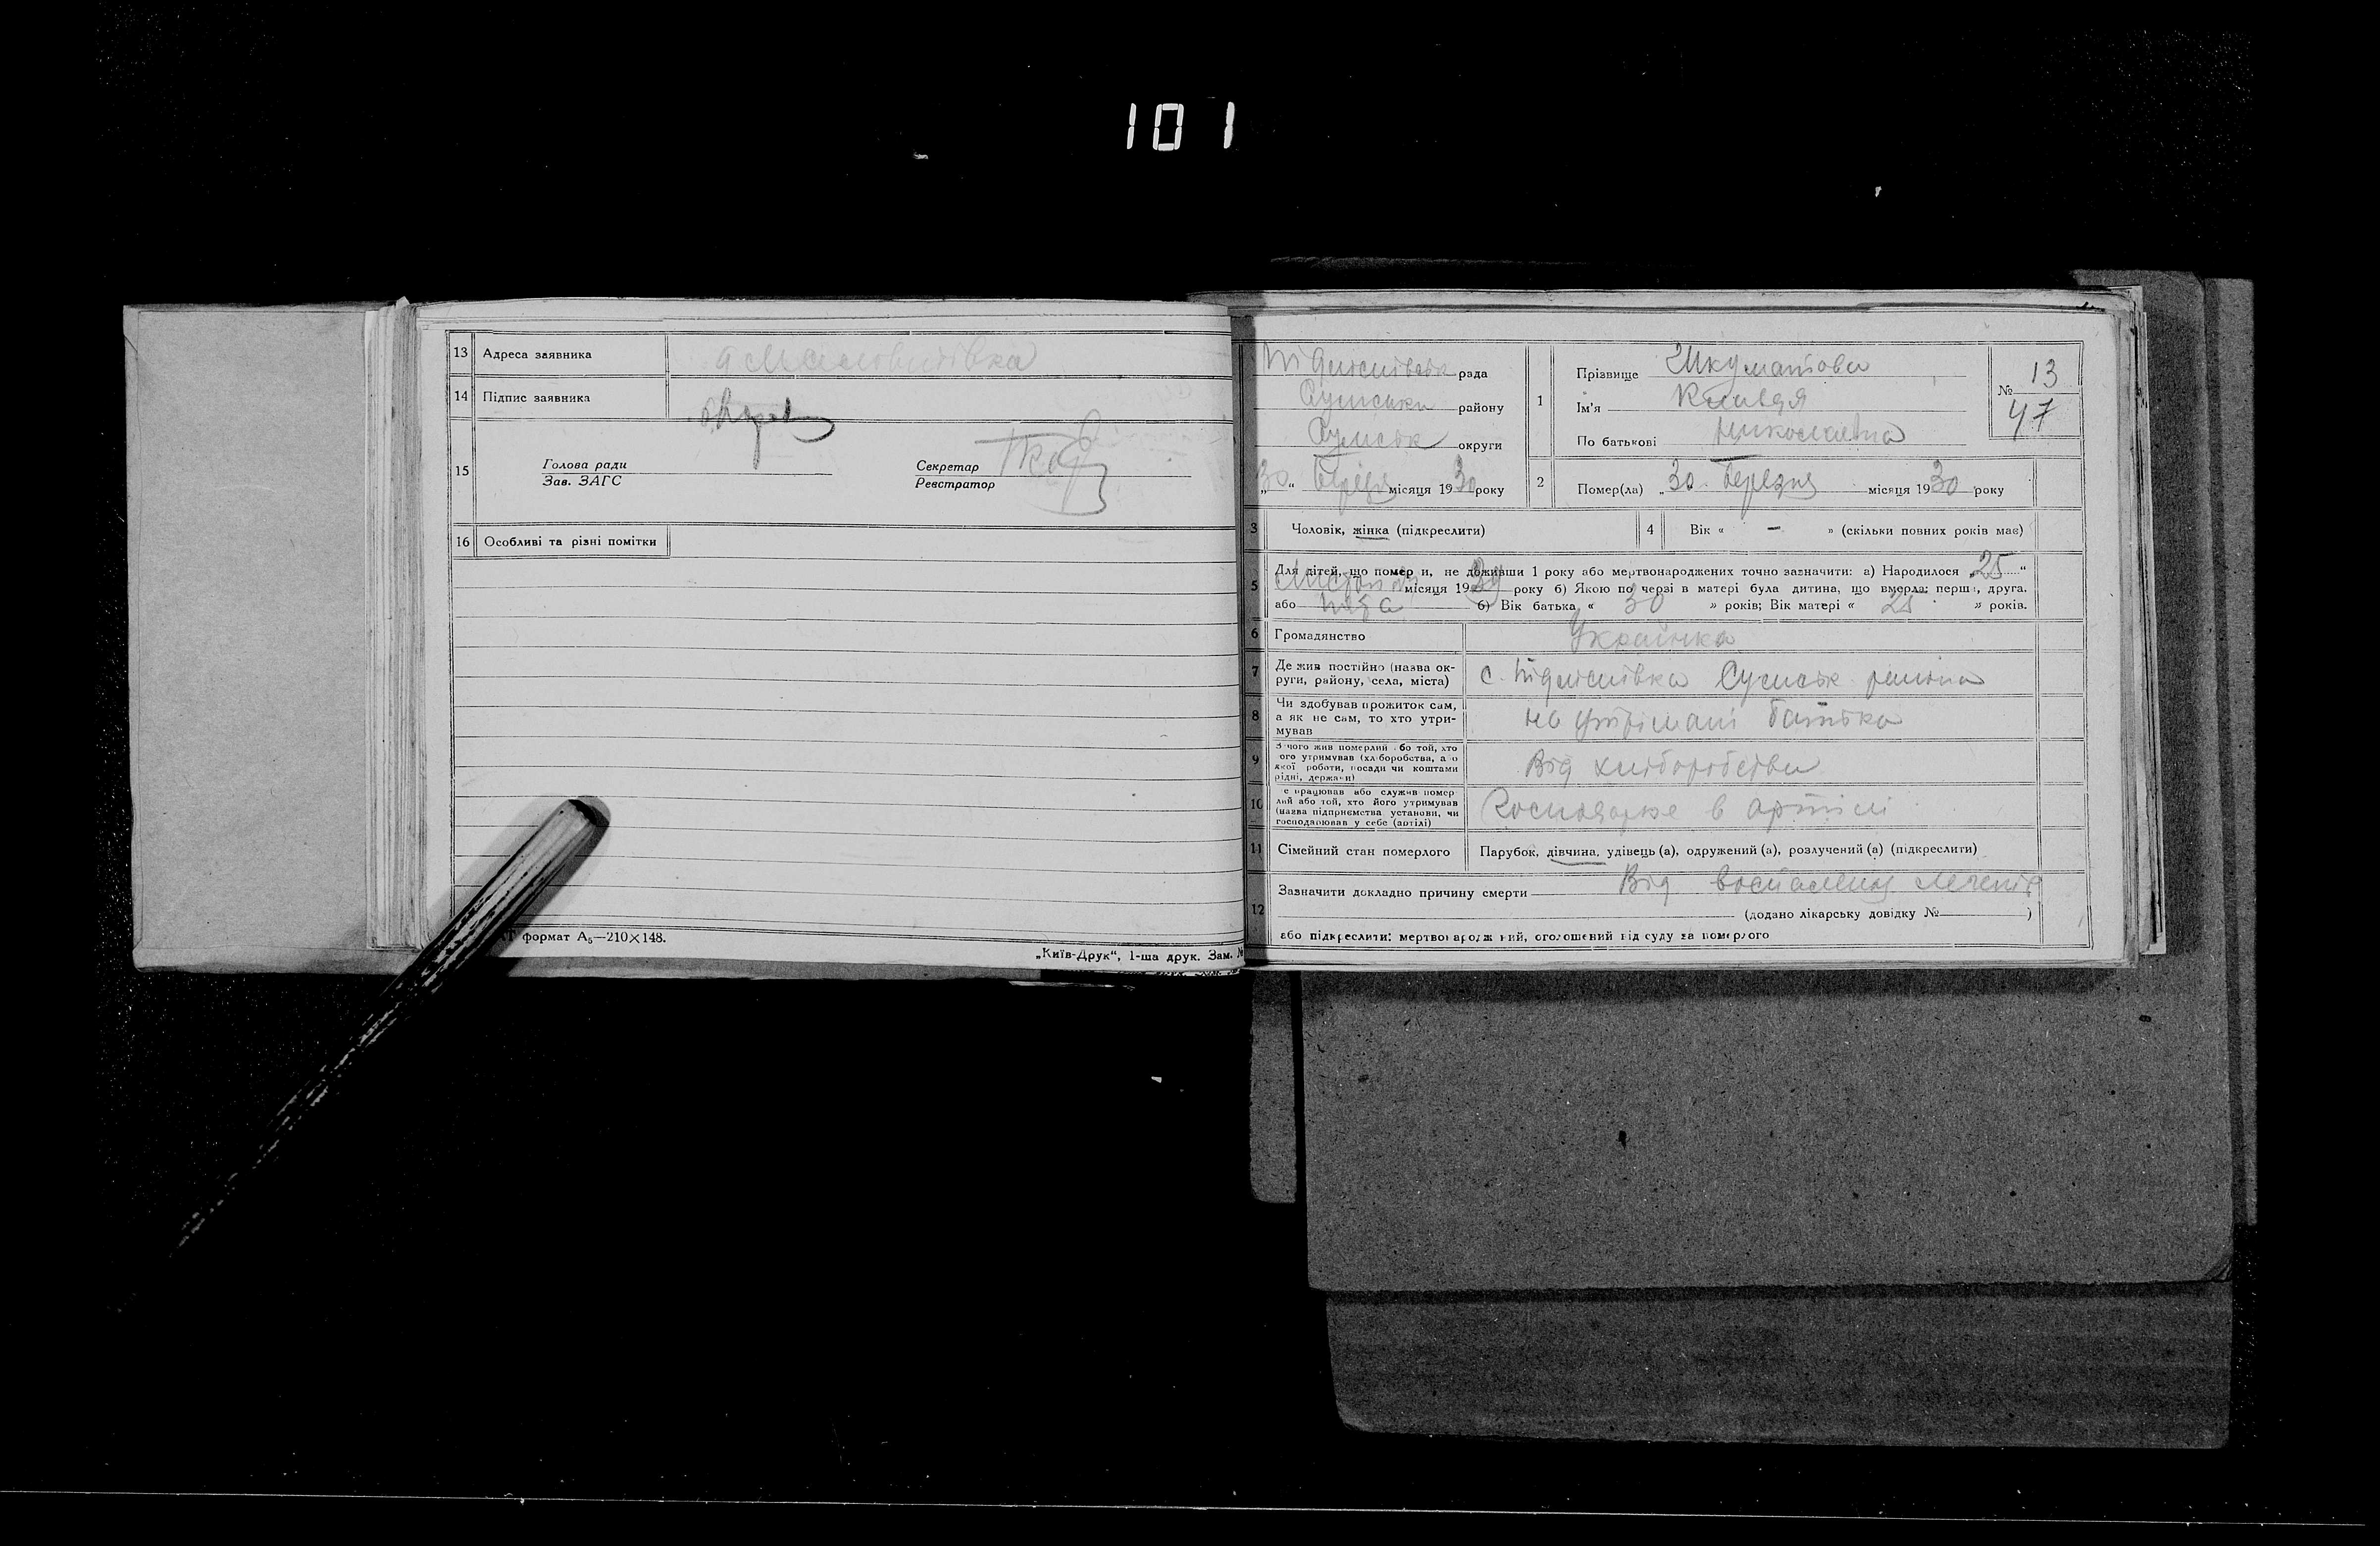 101
13 Адреса заявника
14 Підпис заявника
15 Голова ради
Зав. ЗАГС
Секретар
Реєстратор
16 Особливі та різні помітки
формат А₅—210×148.
„Київ-Друк“, 1-ша друк. Зам. №
рада
Сумськ району
Сумськ округи
„30“ березня місяця 1930 року
1 Прізвище Шкуматова
Ім'я Клавдя
По батькові Николаевна
№ 13
47
2 Помер(ла) „30 березня місяця 1930 року
3 Чоловік, жінка (підкреслити)
4 Вік « – » (скільки повних років має)
5 Для дітей, що померли, не доживши 1 року або мертвонароджених точно зазначити: а) Народилося „25“
місяця 1929 року б) Якою по черзі в матері була дитина, що вмерла: перша, друга.
або б) Вік батька « 30 » років; Вік матері « 25 » років.
6 Громадянство Українка
7 Де жив постійно (назва ок-
руги, району, села, міста) с. Підліснівка Сумськ района
8 Чи здобував прожиток сам,
а як не сам, то хто утри-
мував на утрімані батька
9 З чого жив померлий або той, хто
його утримував (хліборобства, а о
якої роботи, посади чи коштами
рідні, держави) Від хліборобства
10 е працював або служив помер
лий або той, хто його утримував
(назва підприємства установи, чи
господарював у себе (артілі) Господарює в артілі
11 Сімейний стан померлого Парубок, дівчина, удівець (а), одружений (а), розлучений (а) (підкреслити)
12 Зазначити докладно причину смерти Від воспаления легенів
(додано лікарську довідку № )
або підкреслити: мертвонароджений, оголошений від суду за померлого